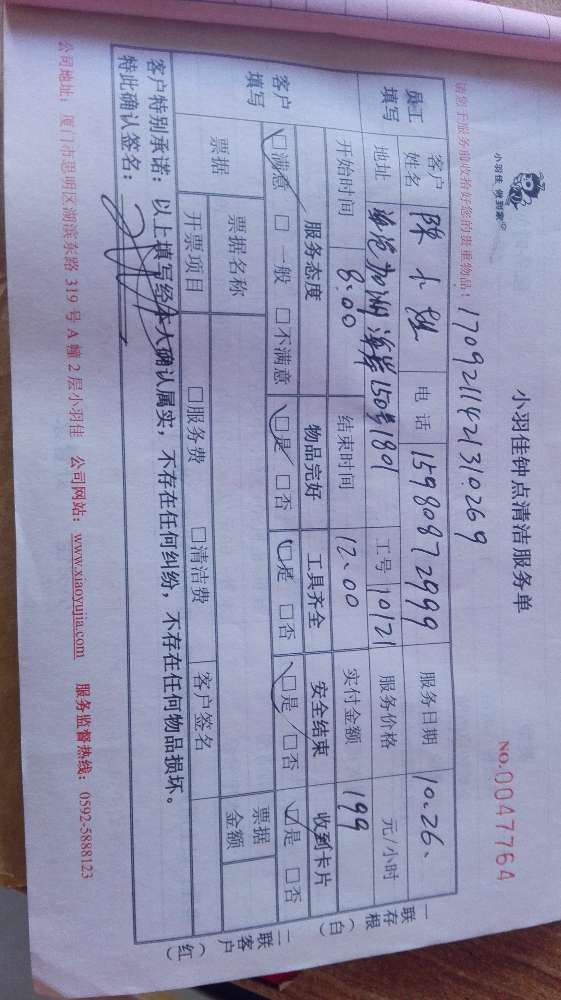 小羽佳 做到家
小羽佳钟点清洁服务单
NO.0047764
请您于服务前收拾好您的贵重物品！
170921142131026９
员工填写
客户姓名 陈小姐 电话 15980872999 服务日期 10.26、
地址 加洲海岸150号1801 工号 10121 服务价格 元/小时
开始时间 8:00 结束时间 12、00 实付金额 199
客户填写
服务态度 物品完好 工具齐全 安全结束 收到卡片
☑满意 □一般 □不满意 ☑是 □否 ☑是 □否 ☑是 □否 ☑是 □否
票据 票据名称 票据金额
开票项目 □服务费 □清洁费 客户签名
客户特别承诺：以上填写经本人确认属实，不存在任何纠纷，不存在任何物品损坏。
特此确认签名：
一联存根（白）
二联客户（红）
公司地址：厦门市思明区湖滨东路 319 号 A 幢 2 层小羽佳 公司网站：www.xiaoyujia.com 服务监督热线：0592-5888123